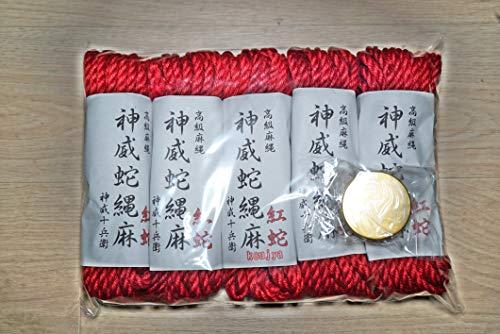 高級麻縄
神威蛇縄麻
紅蛇
神威十兵衛
高級麻縄
神威蛇縄麻
紅蛇
神威十兵衛
高級麻縄
神威蛇縄麻
紅蛇
koujya
高級麻縄
神威蛇縄
紅蛇
高級麻縄
神威
紅蛇